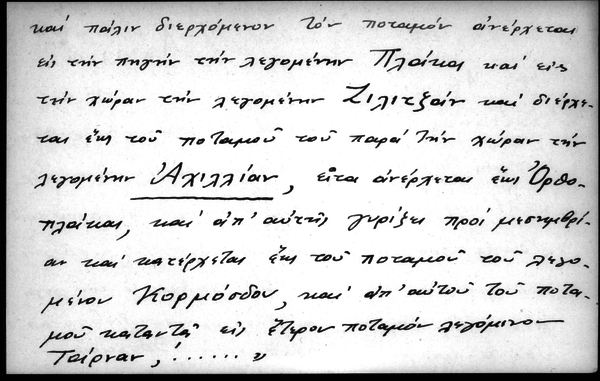 καί πάλιν διερχόμενον τόν ποταμόν ἀνέρχεται
εἰς τήν πηγήν τήν λεγομένην Πλάκαι καί εἰς
τήν χώραν τήν λεγομένην Ζιλιτξάν καί διέρχε-
ται ἕως τοῦ ποταμοῦ τοῦ παρά τήν χώραν τήν
λεγομένην Ἀχιλλίαν, εἶτα ἀνέρχεται ἕως Ὀρθο-
πλάκας, καί ἀπ' αὐτῆς γυρίζει πρός μεσημβρί-
αν καί κατέρχεται ἕως τοῦ ποταμοῦ τοῦ λεγο-
μένου Κορμόσδου, καί ἀπ' αὐτοῦ τοῦ ποτα-
μοῦ καταντᾷ εἰς ἕτερον ποταμόν λεγόμενον
Ταίρναν, !...... "